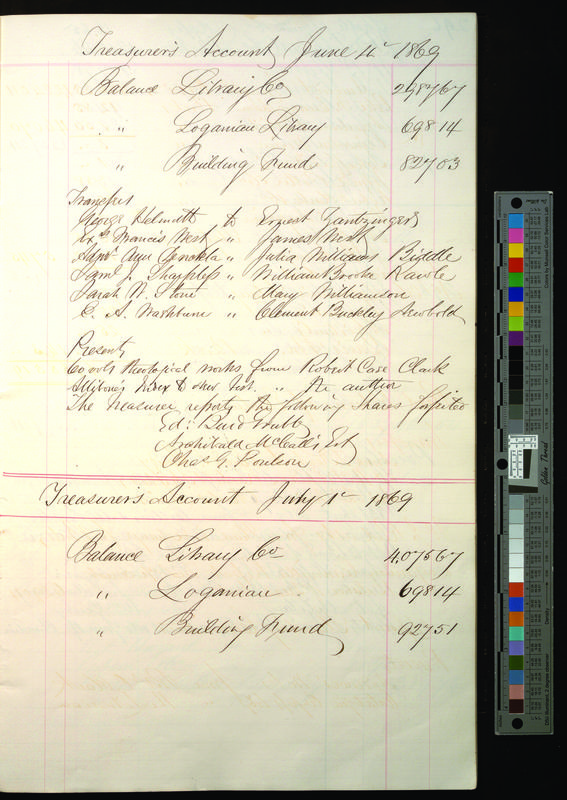 Treasurer's Account June 4th 1869
Balance Library Co 2,987 67
" Loganian Library 698 14
" Building Fund 827 03
Transfers
George Helmuth to Ernest Zantzinger
Exr Francis West " James West
Admr Ann " Julia Williams Biddle
Saml J. Sharpless " William Brooke Rawle
Sarah N. Stone " Mary Williamson
C. A. Washburn " Clement Buckley Newbold
Presents
60 vols theological works from Robert Case Clark
Allibone's Index to New Test. " the author
The Treasurer reports the following Shares forfeited
Ed: Burd Hubb
Archibald McCall's Est
Chas G. Poulson
Treasurer's Account July 1st 1869
Balance Library Co 4,075 67
" Loganian 698 14
" Building Fund 927 51